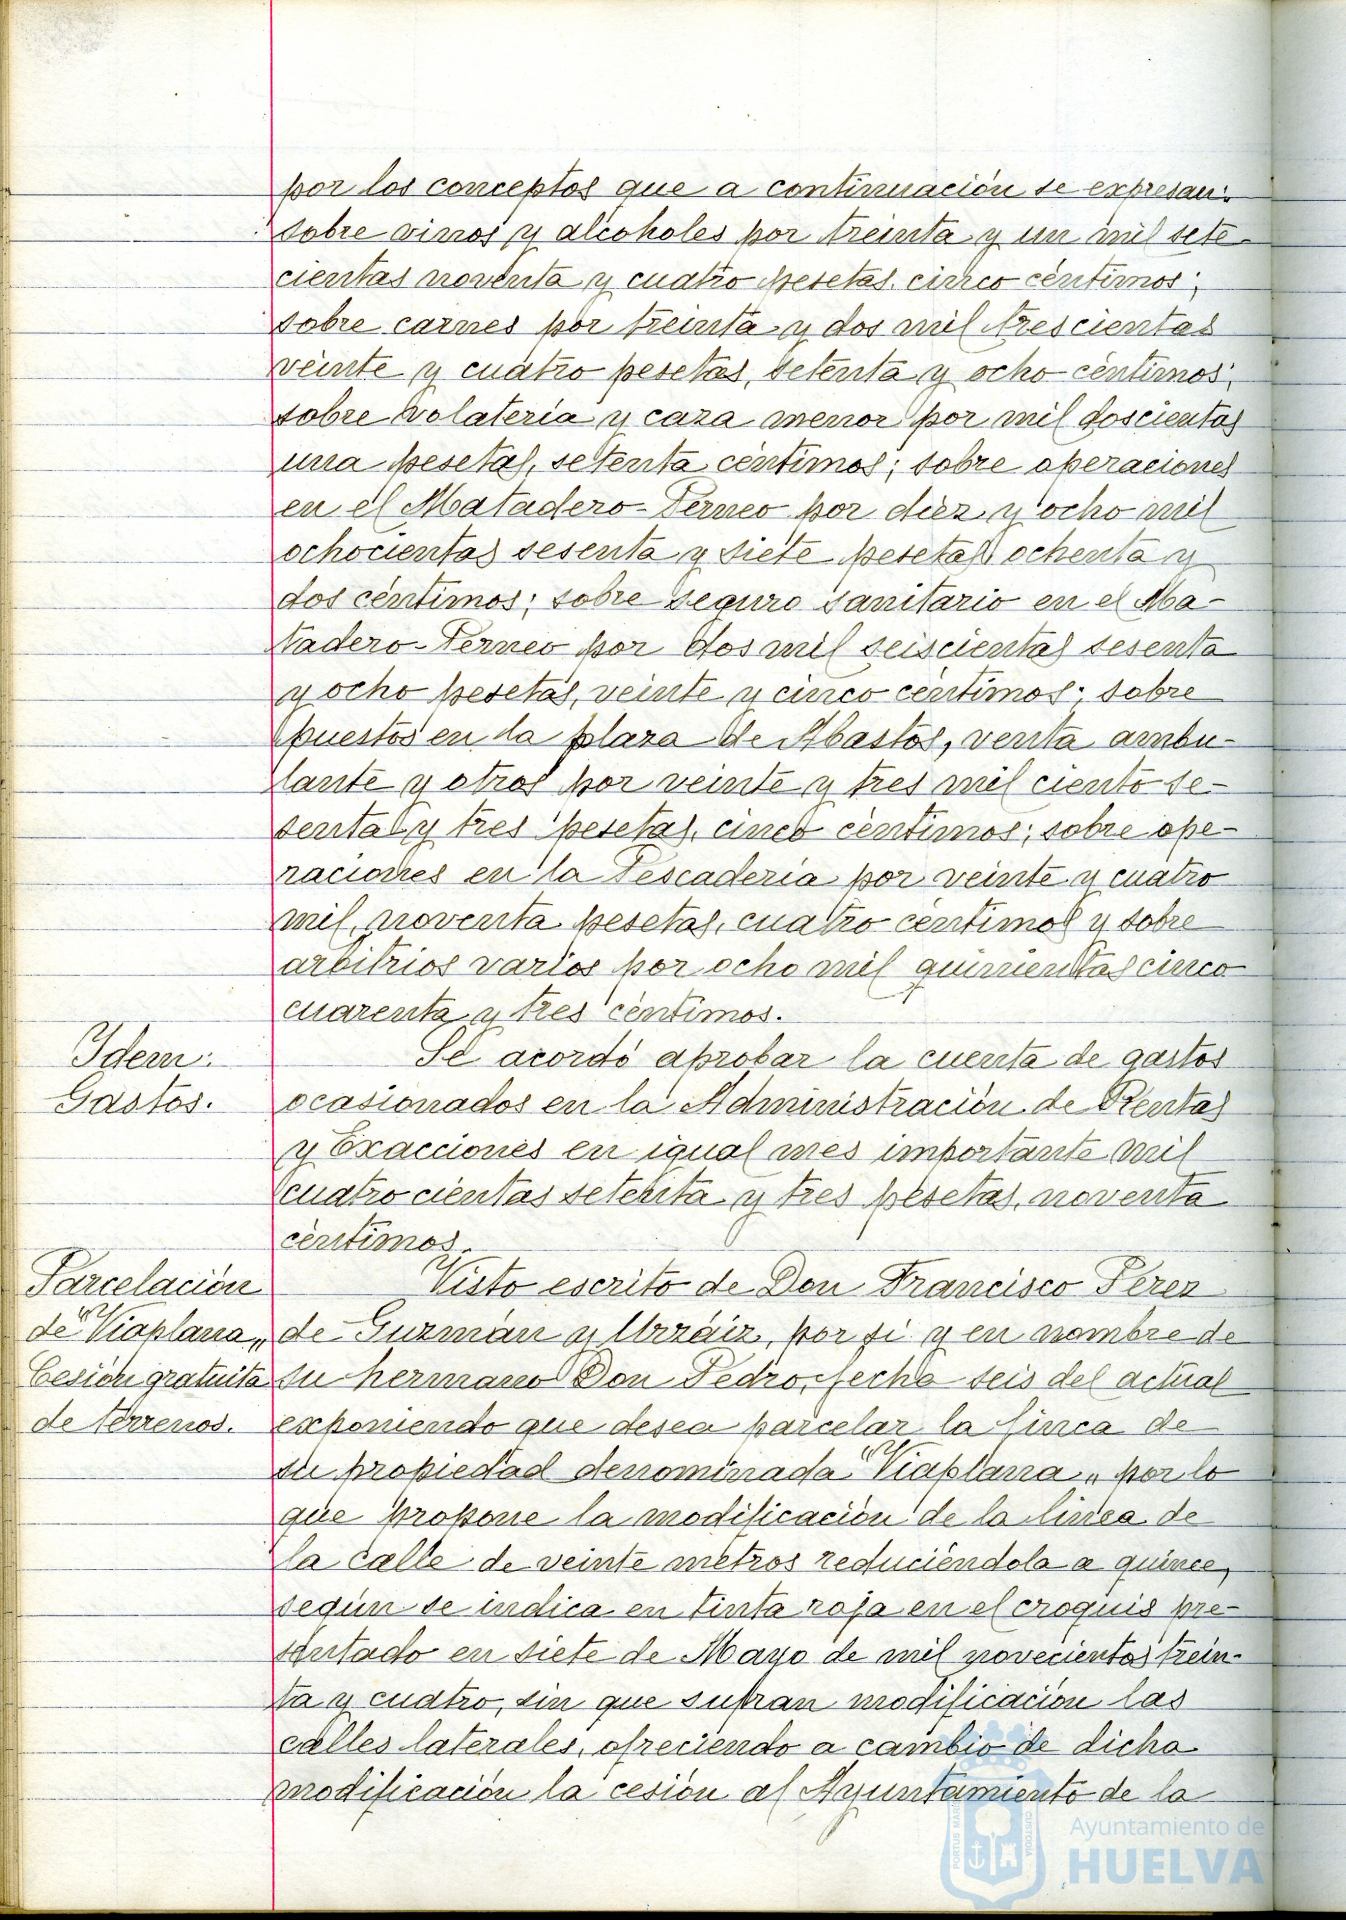 por los conceptos que a continuación se expresan:
sobre vinos y alcoholes por treinta y un mil sete-
cientas noventa y cuatro pesetas, cinco céntimos;
sobre carnes por treinta y dos mil trescientas
veinte y cuatro pesetas, setenta y ocho céntimos;
sobre volatería y caza menor por mil doscientas
una pesetas, setenta céntimos; sobre operaciones
en el Matadero-Perneo por diez y ocho mil
ochocientas sesenta y siete pesetas ochenta y
dos céntimos; sobre seguro sanitario en el Ma-
tadero-Perneo por dos mil seiscientas sesenta
y ocho pesetas, veinte y cinco céntimos; sobre
puestos en la plaza de Abastos, venta ambu-
lante y otros por veinte y tres mil ciento se-
senta y tres pesetas, cinco céntimos; sobre ope-
raciones en la Pescadería por veinte y cuatro
mil, noventa pesetas, cuatro céntimos y sobre
arbitrios varios por ocho mil quinientas cinco
cuarenta y tres céntimos.
Idem:
Gastos.
Se acordó aprobar la cuenta de gastos
ocasionados en la Administración de Rentas
y Exacciones en igual mes importante mil
cuatrocientas setenta y tres pesetas, noventa
céntimos.
Parcelación
de "Viaplana"
Cesión gratuita
de terrenos.
Visto escrito de Don Francisco Pérez
de Guzmán y Urzáiz, por sí y en nombre de
su hermano Don Pedro, fecha seis del actual
exponiendo que desea parcelar la finca de
su propiedad denominada "Viaplana" por lo
que propone la modificación de la línea de
la calle de veinte metros reduciéndola a quince,
según se indica en tinta roja en el croquis pre-
sentado en siete de Mayo de mil novecientos trein-
ta y cuatro, sin que sufran modificación las
calles laterales, ofreciendo a cambio de dicha
modificación la cesión al Ayuntamiento de la
PORTUS MARIS
CUSTODIA
Ayuntamiento de
HUELVA